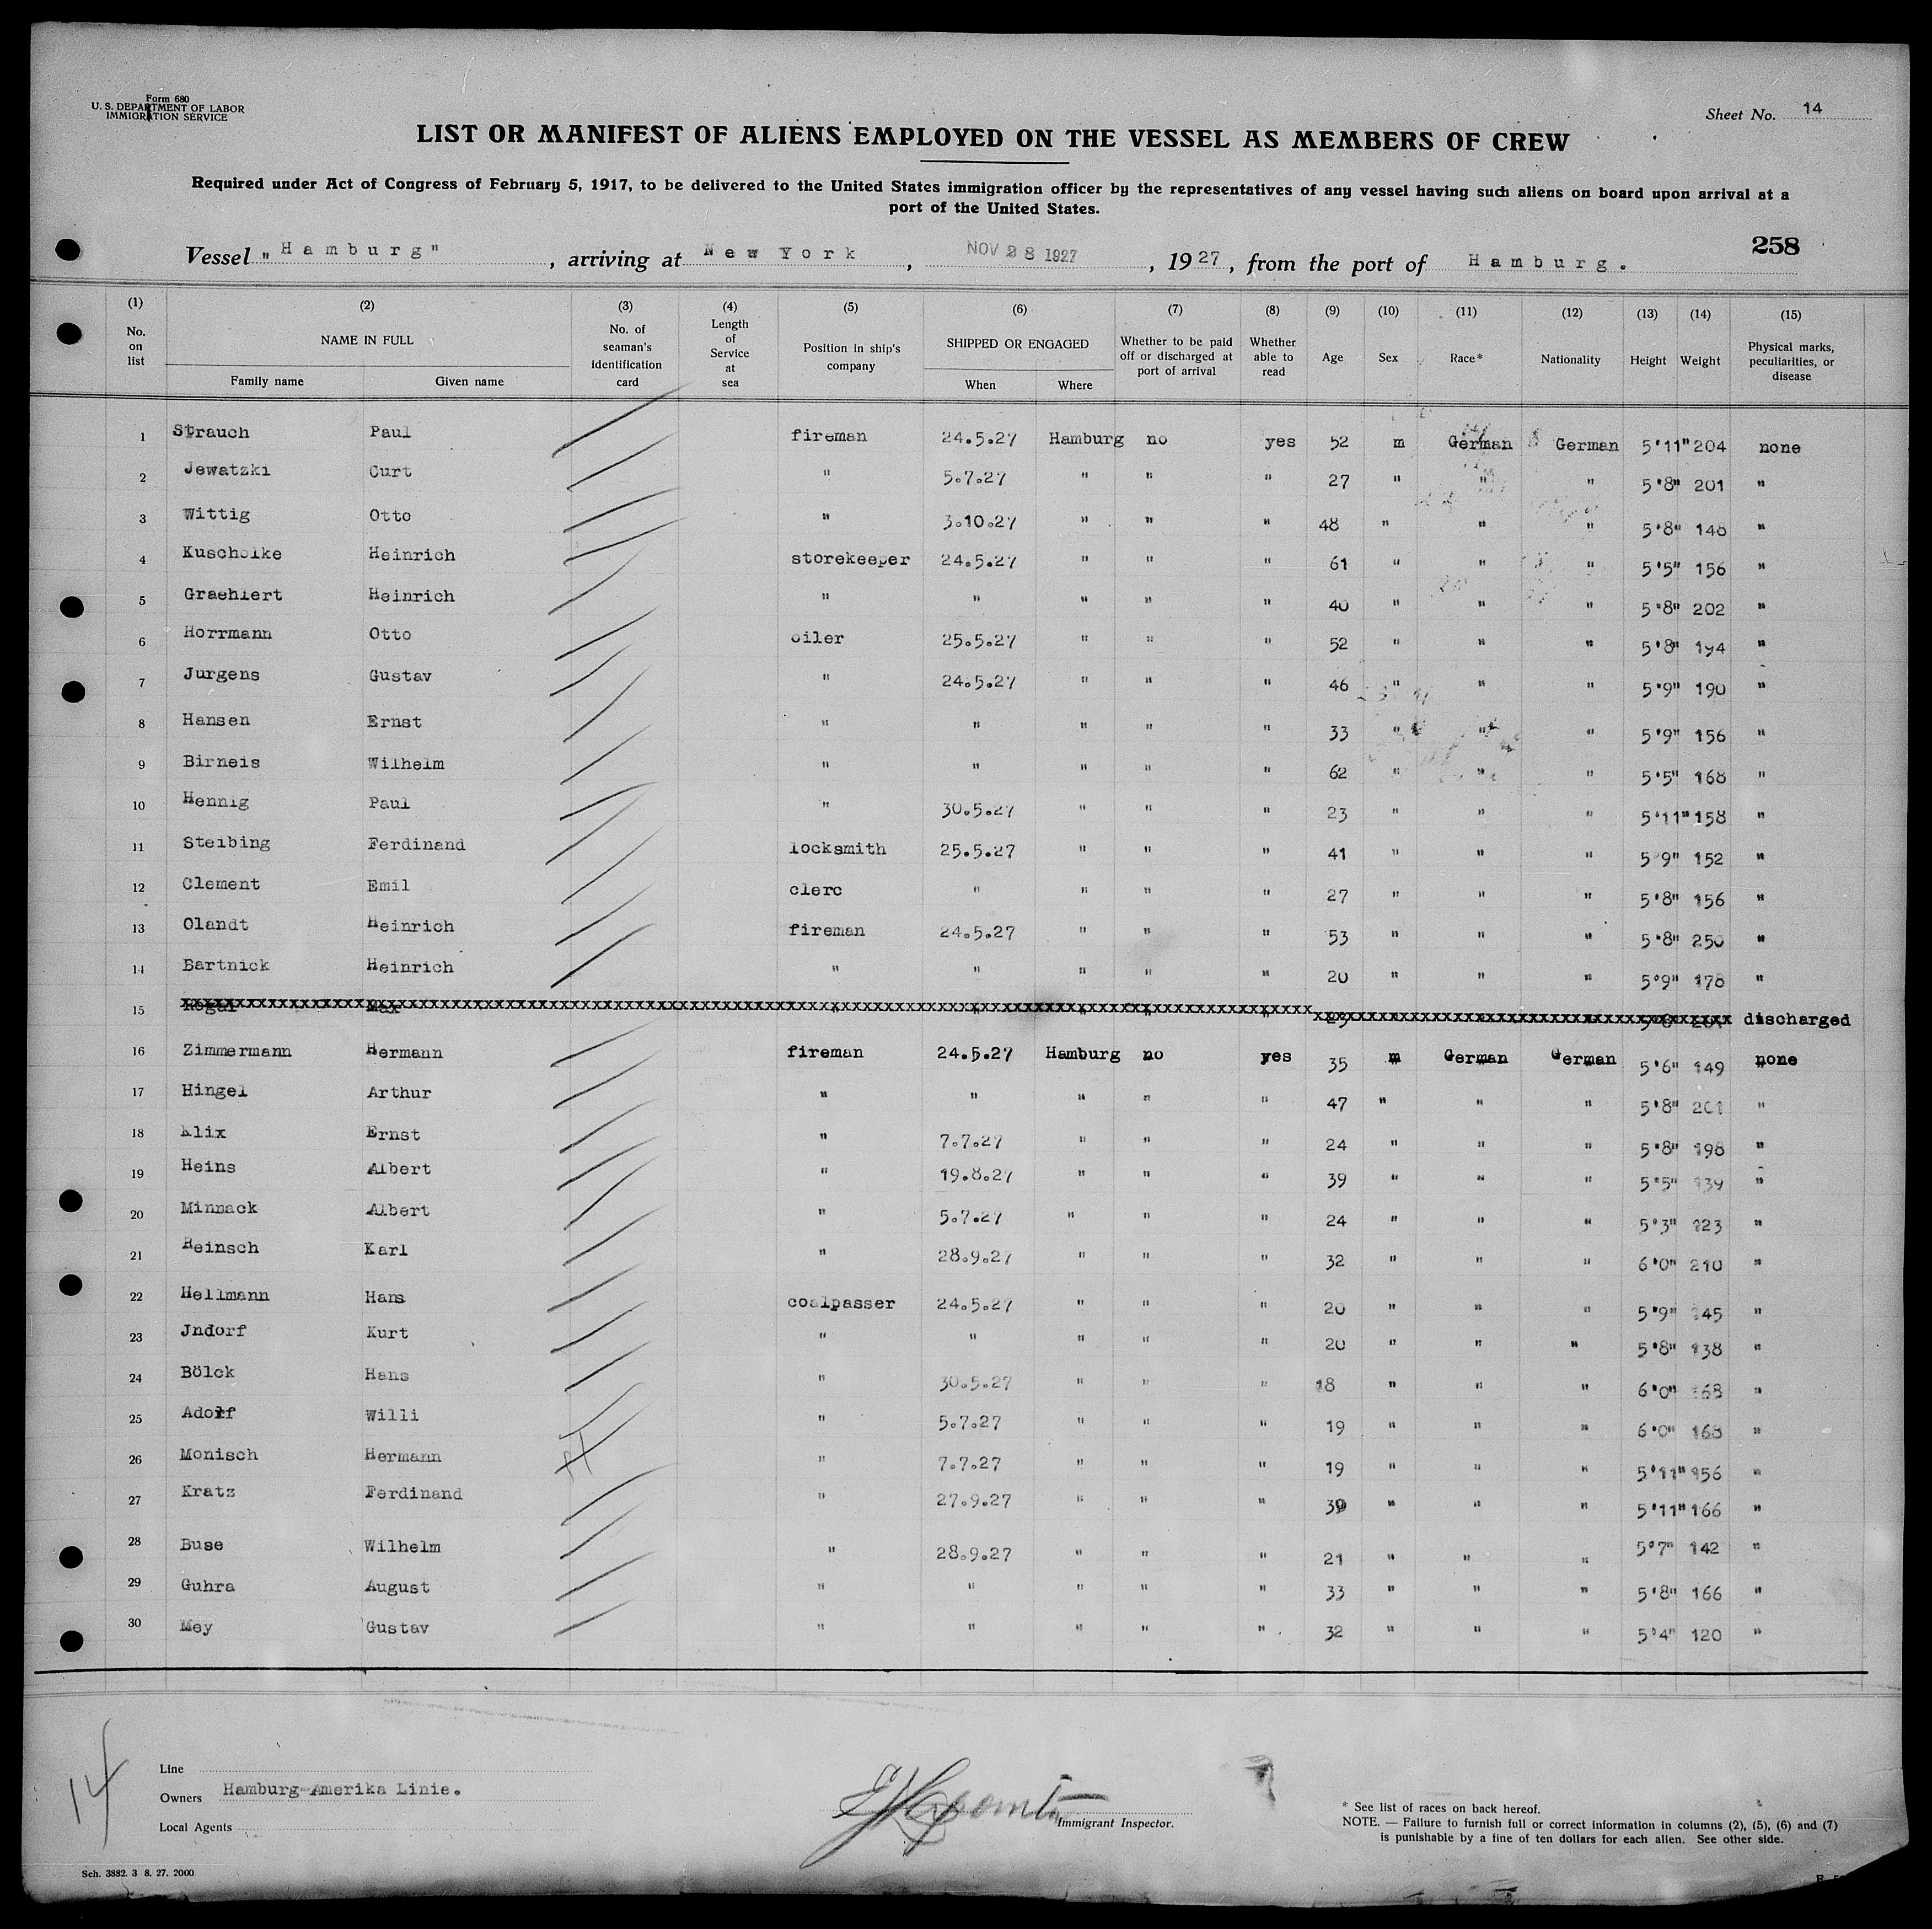 Form 680
U. S. DEPARTMENT OF LABOR
IMMIGRATION SERVICE
Sheet No. 14
LIST OR MANIFEST OF ALIENS EMPLOYED ON THE VESSEL AS MEMBERS OF CREW
Required under Act of Congress of February 5, 1917, to be delivered to the United States immigration officer by the representatives of any vessel having such aliens on board upon arrival at a
port of the United States.
258
Vessel "Hamburg", arriving at New York, NOV 28 1927, 1927, from the port of Hamburg.
(1) (2) (3) (4) (5) (6) (7) (8) (9) (10) (11) (12) (13) (14) (15)
No. on list NAME IN FULL No. of seaman's identification card Length of Service at sea Position in ship's company SHIPPED OR ENGAGED Whether to be paid off or discharged at port of arrival Whether able to read Age Sex Race* Nationality Height Weight Physical marks, peculiarities, or disease
Family name Given name When Where
1 Strauch Paul fireman 24.5.27 Hamburg no yes 52 m German German 5'11" 204 none
2 Jewatzki Curt " 5.7.27 " " " 27 " " " 5'8" 201 "
3 Wittig Otto " 3.10.27 " " " 48 " " " 5'8" 148 "
4 Kuscholke Heinrich storekeeper 24.5.27 " " " 61 " " " 5'5" 156 "
5 Graehlert Heinrich " " " " " 40 " " " 5'8" 202 "
6 Horrmann Otto oiler 25.5.27 " " " 52 " " " 5'8" 194 "
7 Jurgens Gustav " 24.5.27 " " " 46 " " " 5'9" 190 "
8 Hansen Ernst " " " " " 33 " " " 5'9" 156 "
9 Birneis Wilhelm " " " " " 62 " " " 5'5" 168 "
10 Hennig Paul " 30.5.27 " " " 23 " " " 5'11" 158 "
11 Steibing Ferdinand locksmith 25.5.27 " " " 41 " " " 5'9" 152 "
12 Clement Emil clerc " " " " 27 " " " 5'8" 156 "
13 Olandt Heinrich fireman 24.5.27 " " " 53 " " " 5'8" 250 "
14 Bartnick Heinrich " " " " " 20 " " " 5'9" 178 "
15 Max discharged
16 Zimmermann Hermann fireman 24.5.27 Hamburg no yes 35 m German German 5'6" 149 none
17 Hingel Arthur " " " " " 47 " " " 5'8" 201 "
18 Klix Ernst " 7.7.27 " " " 24 " " " 5'8" 198 "
19 Heins Albert " 19.8.27 " " " 39 " " " 5'5" 139 "
20 Minnack Albert " 5.7.27 " " " 24 " " " 5'3" 123 "
21 Reinsch Karl " 28.9.27 " " " 32 " " " 6'0" 210 "
22 Hellmann Hans coalpasser 24.5.27 " " " 20 " " " 5'9" 145 "
23 Jndorf Kurt " " " " " 20 " " " 5'8" 138 "
24 Bölck Hans " 30.5.27 " " " 18 " " " 6'0" 168 "
25 Adorf Willi " 5.7.27 " " " 19 " " " 6'0" 168 "
26 Monisch Hermann " 7.7.27 " " " 19 " " " 5'11" 156 "
27 Kratz Ferdinand " 27.9.27 " " " 39 " " " 5'11" 166 "
28 Buse Wilhelm " 28.9.27 " " " 21 " " " 5'7" 142 "
29 Guhra August " " " " " 33 " " " 5'8" 166 "
30 Mey Gustav " " " " " 32 " " " 5'4" 120 "
14
Line
Owners Hamburg-Amerika Linie.
Local Agents
Immigrant Inspector.
* See list of races on back hereof.
NOTE. — Failure to furnish full or correct information in columns (2), (5), (6) and (7)
is punishable by a fine of ten dollars for each alien. See other side.
Sch. 3882. 3 8. 27. 2000